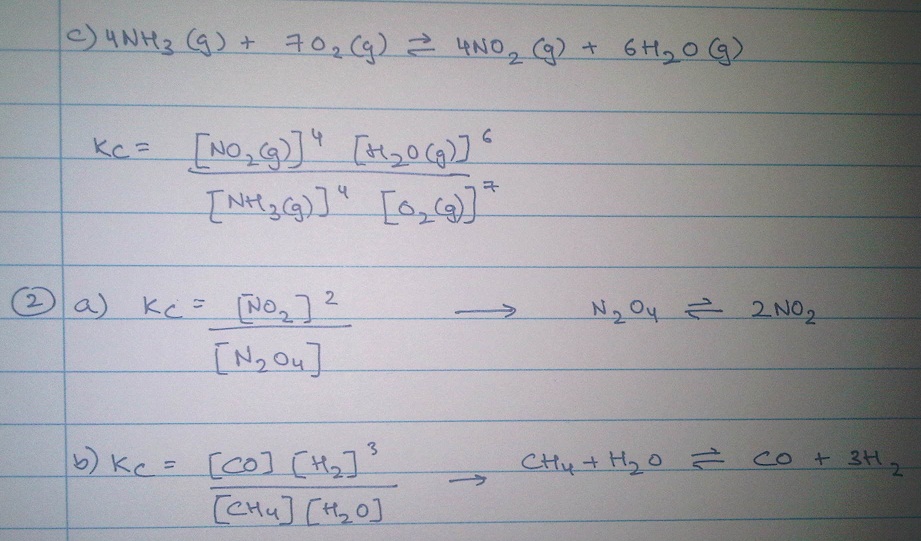 c) 4NH₃ (g) + 7O₂ (g) ⇌ 4NO₂ (g) + 6H₂O (g)
Kc = [NO₂(g)]⁴ [H₂O(g)]⁶
[NH₃(g)]⁴ [O₂(g)]⁷
② a) Kc = [NO₂]² → N₂O₄ ⇌ 2NO₂
[N₂O₄]
b) Kc = [CO] [H₂]³ → CH₄ + H₂O ⇌ CO + 3H₂
[CH₄] [H₂O]